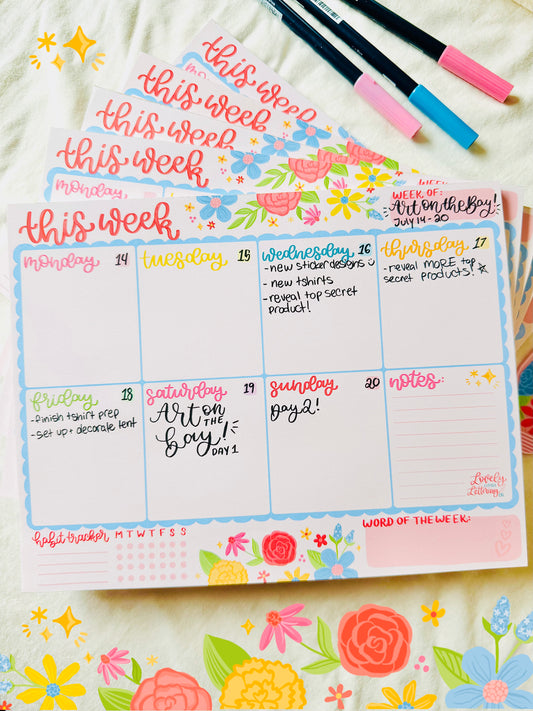 this week
this week
this week
this week
monday
WEEK OF:
this week
Art on the Bay!
JULY 14-20
monday 14
tuesday 15
wednesday 16
- new sticker designs
- new tshirts
- reveal top secret
product!
thursday 17
- reveal MORE top
secret products!
friday 18
- finish tshirt prep
- set up + decorate tent
saturday 19
Art on
THE
bay!
DAY 1
sunday 20
Day 2!
notes:
Lovely
Lettering
CO.
habit tracker
M T W T F S S
WORD OF THE WEEK: